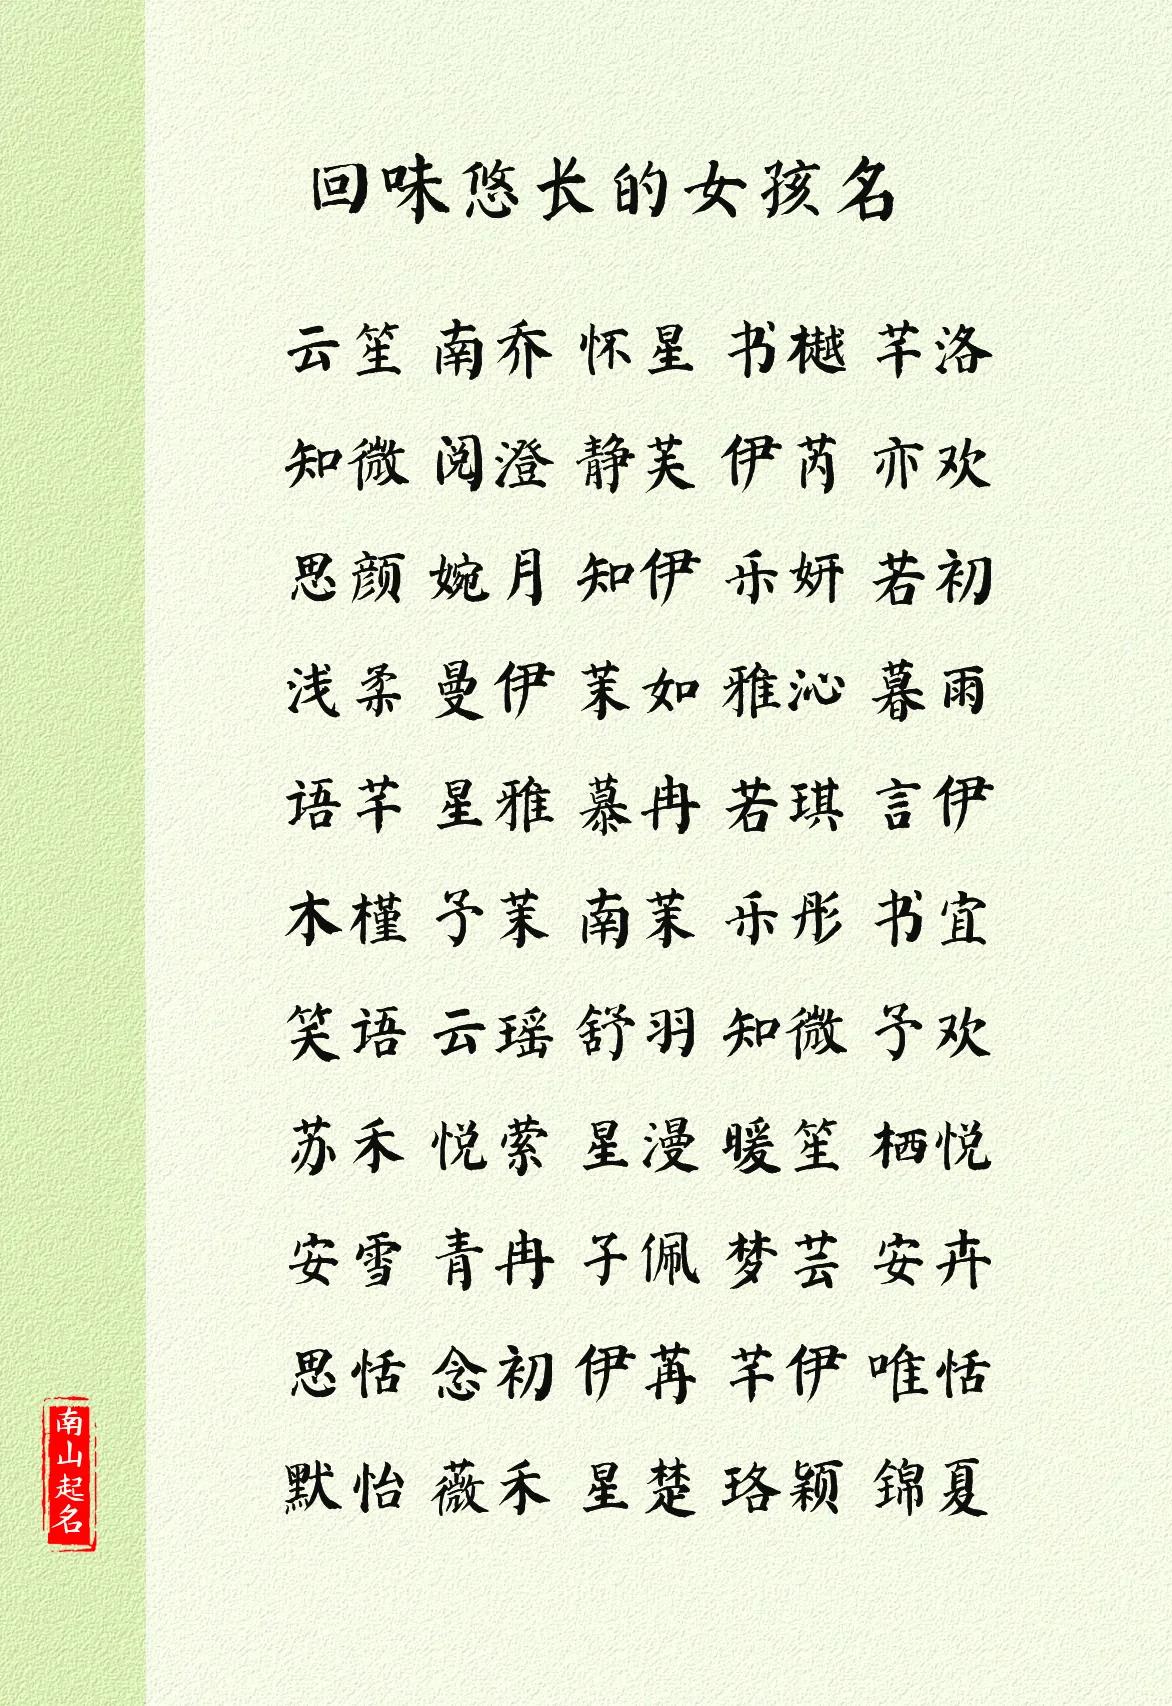 回味悠长的女孩名
云笙 南乔 怀星 书樾 芊洛
知微 阅澄 静芙 伊芮 亦欢
思颜 婉月 知伊 乐妍 若初
浅柔 曼伊 茉如 雅沁 暮雨
语芊 星雅 慕冉 若琪 言伊
木槿 予茉 南茉 乐彤 书宜
笑语 云瑶 舒羽 知微 予欢
苏禾 悦萦 星漫 暖笙 栖悦
安雪 青冉 子佩 梦芸 安卉
思恬 念初 伊苒 芊伊 唯恬
默怡 薇禾 星楚 珞颖 锦夏
南山起名